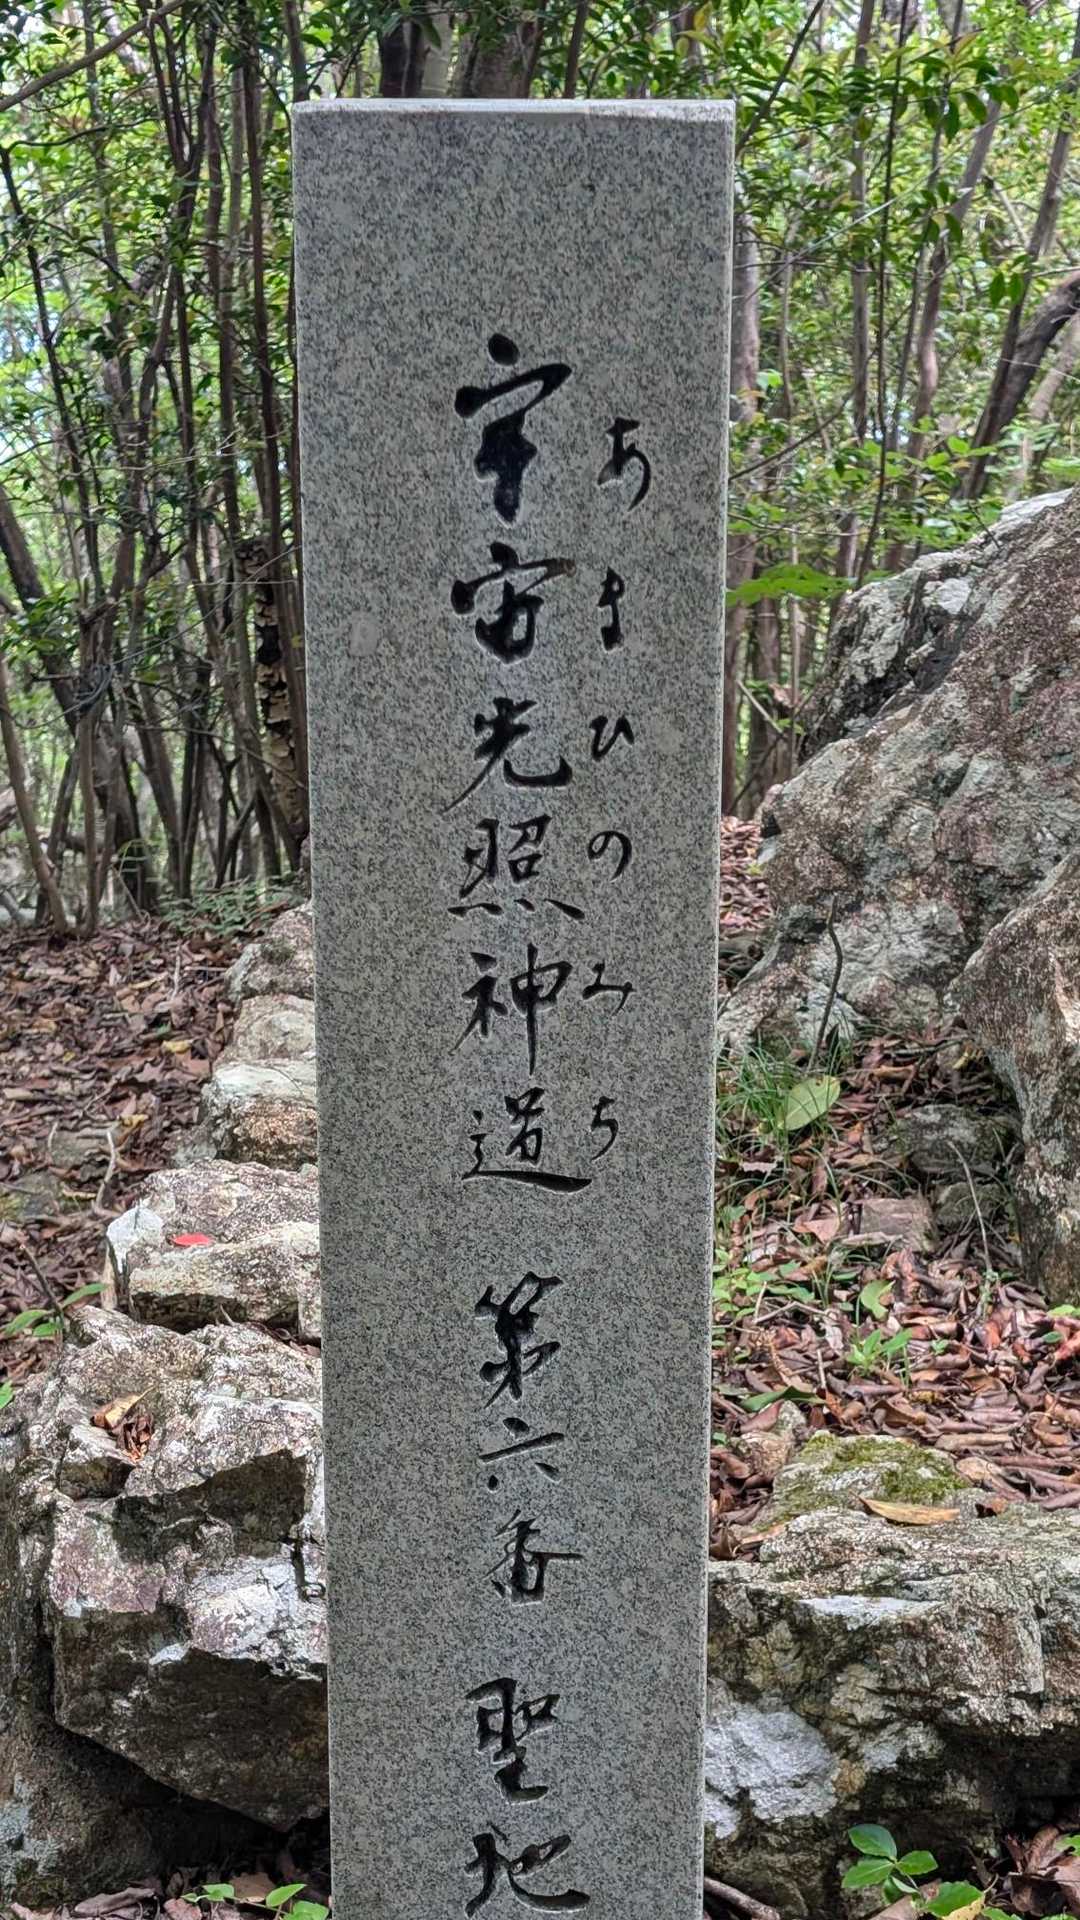 宇宙光照神道 第六番 聖地
あまひのみち